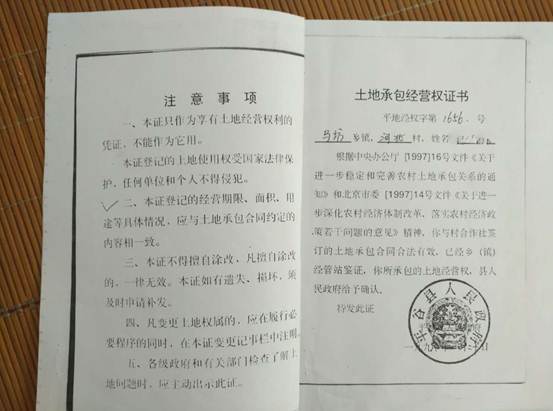 注意事项
一、本证只作为享有土地经营权利的
凭证，不能作为它用。
本证登记的土地使用权受国家法律保
护，任何单位和个人不得侵犯。
二、本证登记的经营期限、面积、用
途等具体情况，应与土地承包合同约定的
内容相一致。
三、本证不得擅自涂改，凡擅自涂改
的，一律无效。本证如有遗失、损坏，须
及时申请补发。
四、凡变更土地权属的，应在履行必
要程序的同时，在本证变更记事栏中注明。
五、各级政府和有关部门检查了解土
地问题时，应主动出示此证。
土地承包经营权证书
平地经权字第 1656 号
马坊 乡镇，河北 村，姓名
根据中央办公厅[1997]16号文件《关于
进一步稳定和完善农村土地承包关系的通
知》和北京市委[1997]14号文件《关于进一
步深化农村经济体制改革，落实农村经济政
策若干问题的意见》精神，你与村合作社签
订的土地承包合同合法有效，已经乡（镇）
经管站鉴证，你所承包的土地经营权，县人
民政府给予确认。
特发此证
平谷县人民政府